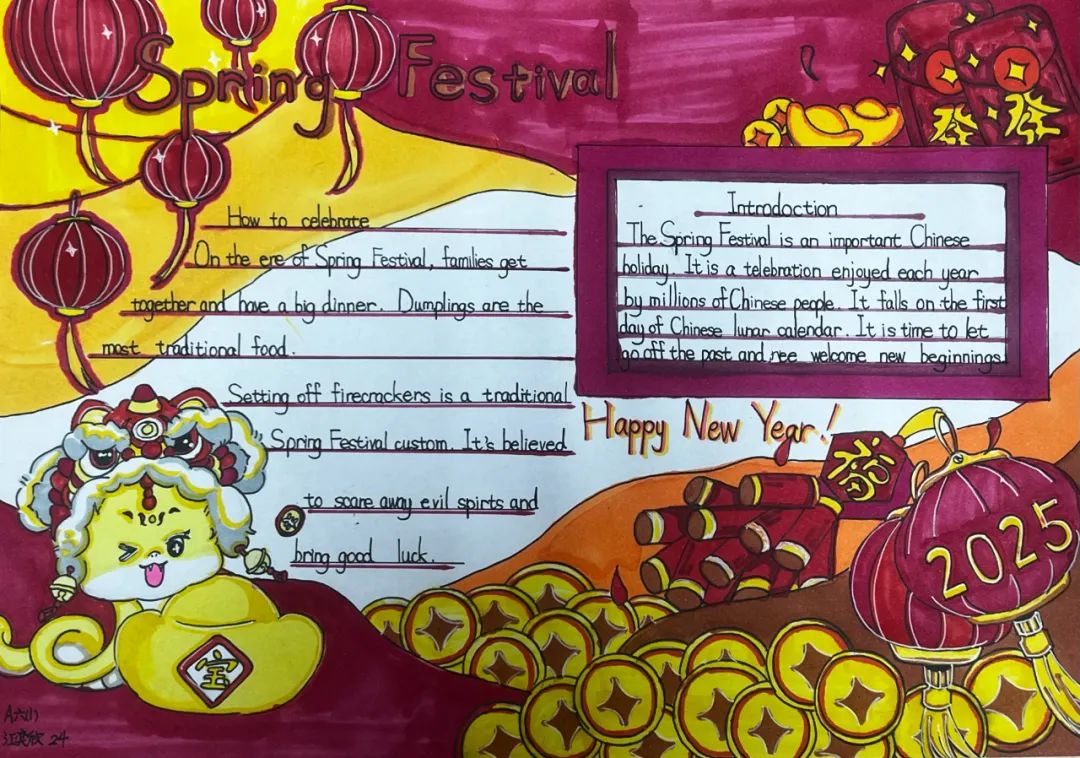 Spring Festival
How to celebrate
On the ere of Spring Festival, families get
together and have a big dinner. Dumplings are the
most traditional food.
Setting off firecrackers is a traditional
Spring Festival custom. It's believed
to scare away evil spirts and
bring good luck.
Introdoction
The Spring Festival is an important Chinese
holiday. It is a telebration enjoyed each year
by millions of Chinese people. It falls on the first
day of Chinese lunar calendar. It is time to let
go off the past and welcome new beginnings
Happy New Year!
福
2025
宝
24